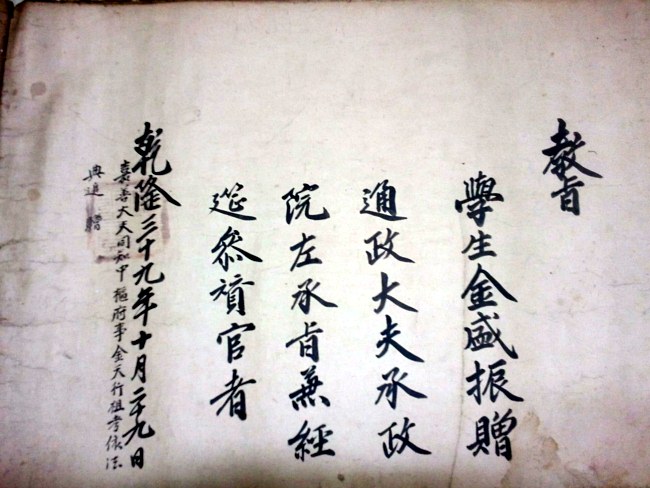 教旨
學生金盛振贈
通政大夫承政
院左承旨兼經
筵參贊官者
乾隆三十九年十月二十九日
嘉善大夫同知中樞府事金天行祖考依法
典追贈